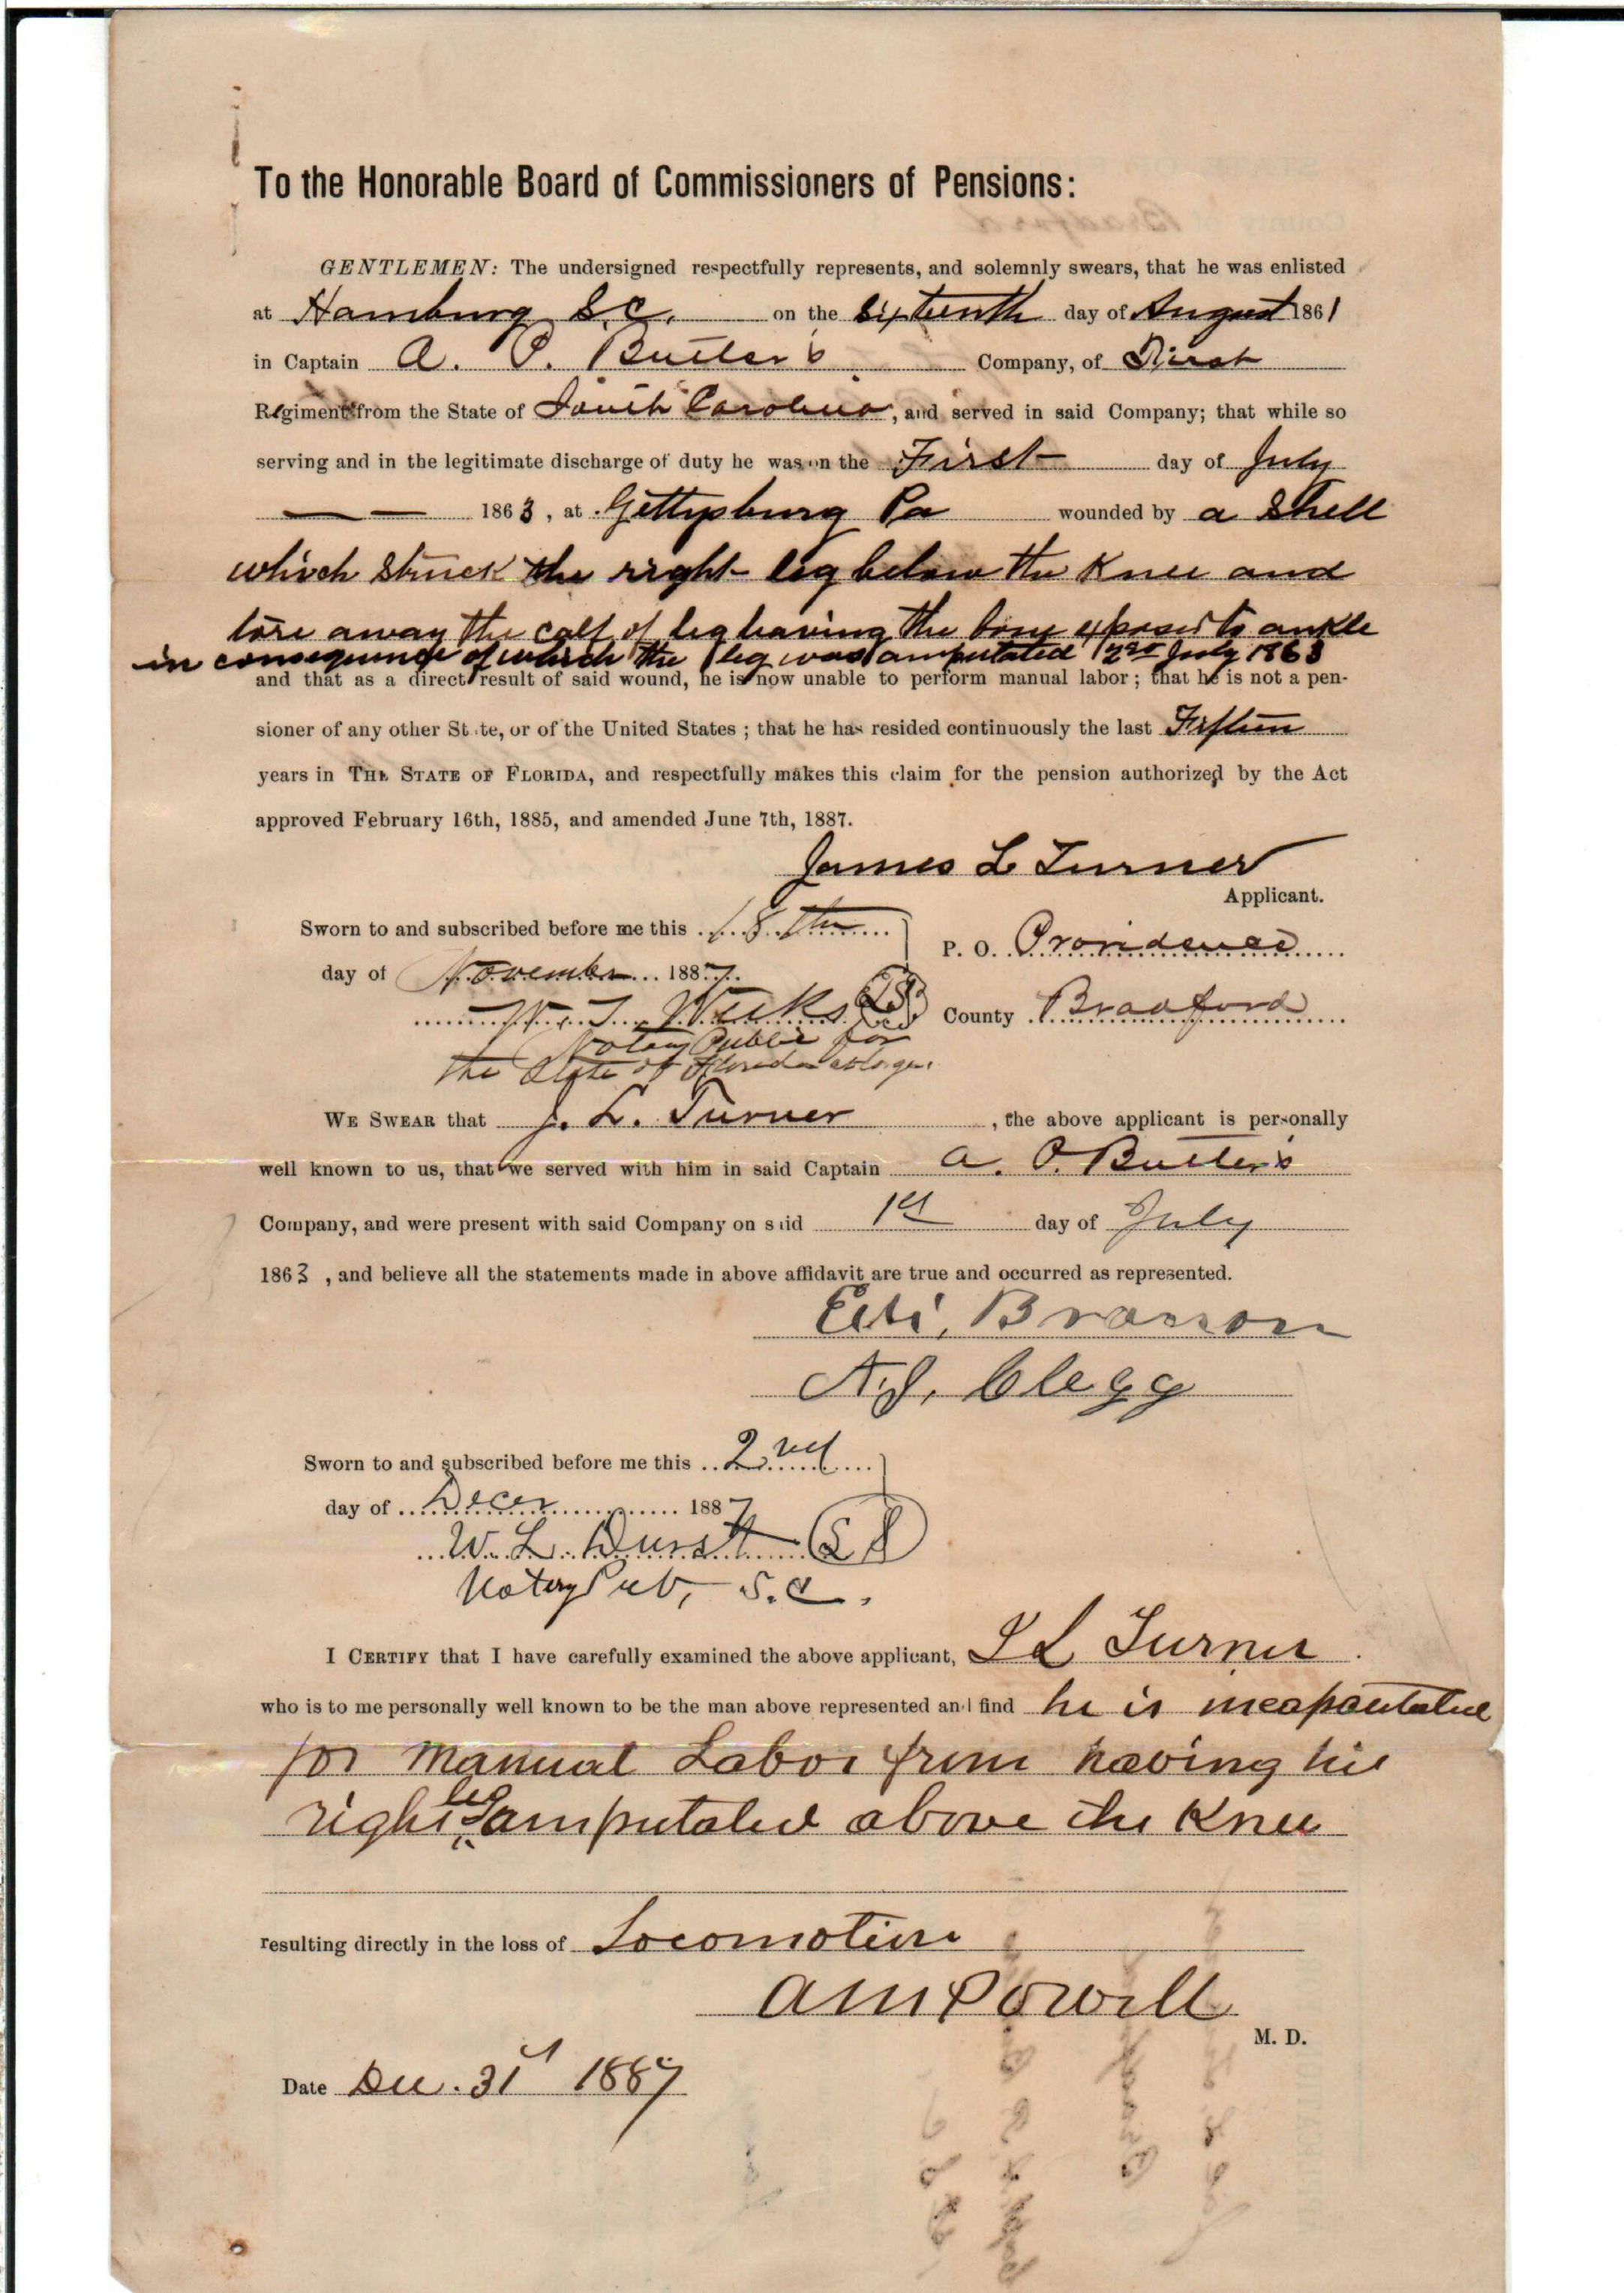 To the Honorable Board of Commissioners of Pensions:
GENTLEMEN: The undersigned respectfully represents, and solemnly swears, that he was enlisted
at Hamburg S.C. on the Sixteenth day of August 1861
in Captain A. P. Butler's Company, of First
Regiment from the State of South Carolina, and served in said Company; that while so
serving and in the legitimate discharge of duty he was on the First day of July
1863, at Gettysburg Pa wounded by a Shell
which struck the right leg below the Knee and
tore away the calf of leg leaving the bone exposed to ankle
in consequence of which the leg was amputated 2nd July 1863
and that as a direct result of said wound, he is now unable to perform manual labor; that he is not a pen-
sioner of any other State, or of the United States; that he has resided continuously the last Fifteen
years in THE STATE OF FLORIDA, and respectfully makes this claim for the pension authorized by the Act
approved February 16th, 1885, and amended June 7th, 1887.
James L Turner
Applicant.
Sworn to and subscribed before me this 18th
day of November 1887.
P. O. Providence
Weeks LS
County Bradford
Notary Public for
the State of Florida at large.
WE SWEAR that J. L. Turner, the above applicant is personally
well known to us, that we served with him in said Captain A. P. Butler's
Company, and were present with said Company on said 1st day of July
1863, and believe all the statements made in above affidavit are true and occurred as represented.
Branson
A.J. Clegg
Sworn to and subscribed before me this 2nd
day of Decer 1887
W. L. Durst LS
Notary Pub, S.C.
I CERTIFY that I have carefully examined the above applicant, J L Turner
who is to me personally well known to be the man above represented and find he is incapacitated
for Manual Labor from having his
right leg amputated above the Knee
resulting directly in the loss of Locomotion
A M Powell
M. D.
Date Dec. 31st 1887